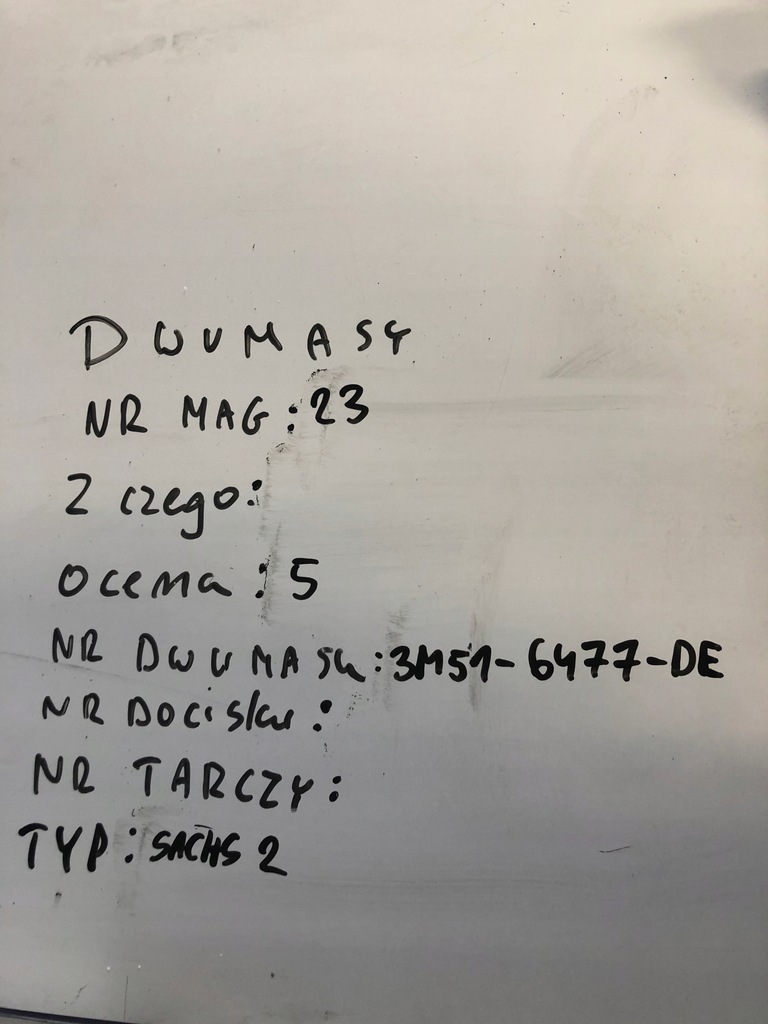 DWUMASY
NR MAG: 23
Z czego:
ocena: 5
NR DWUMASU: 3M51-6477-DE
NR DOCISKU:
NR TARCZY:
TYP: SACHS 2